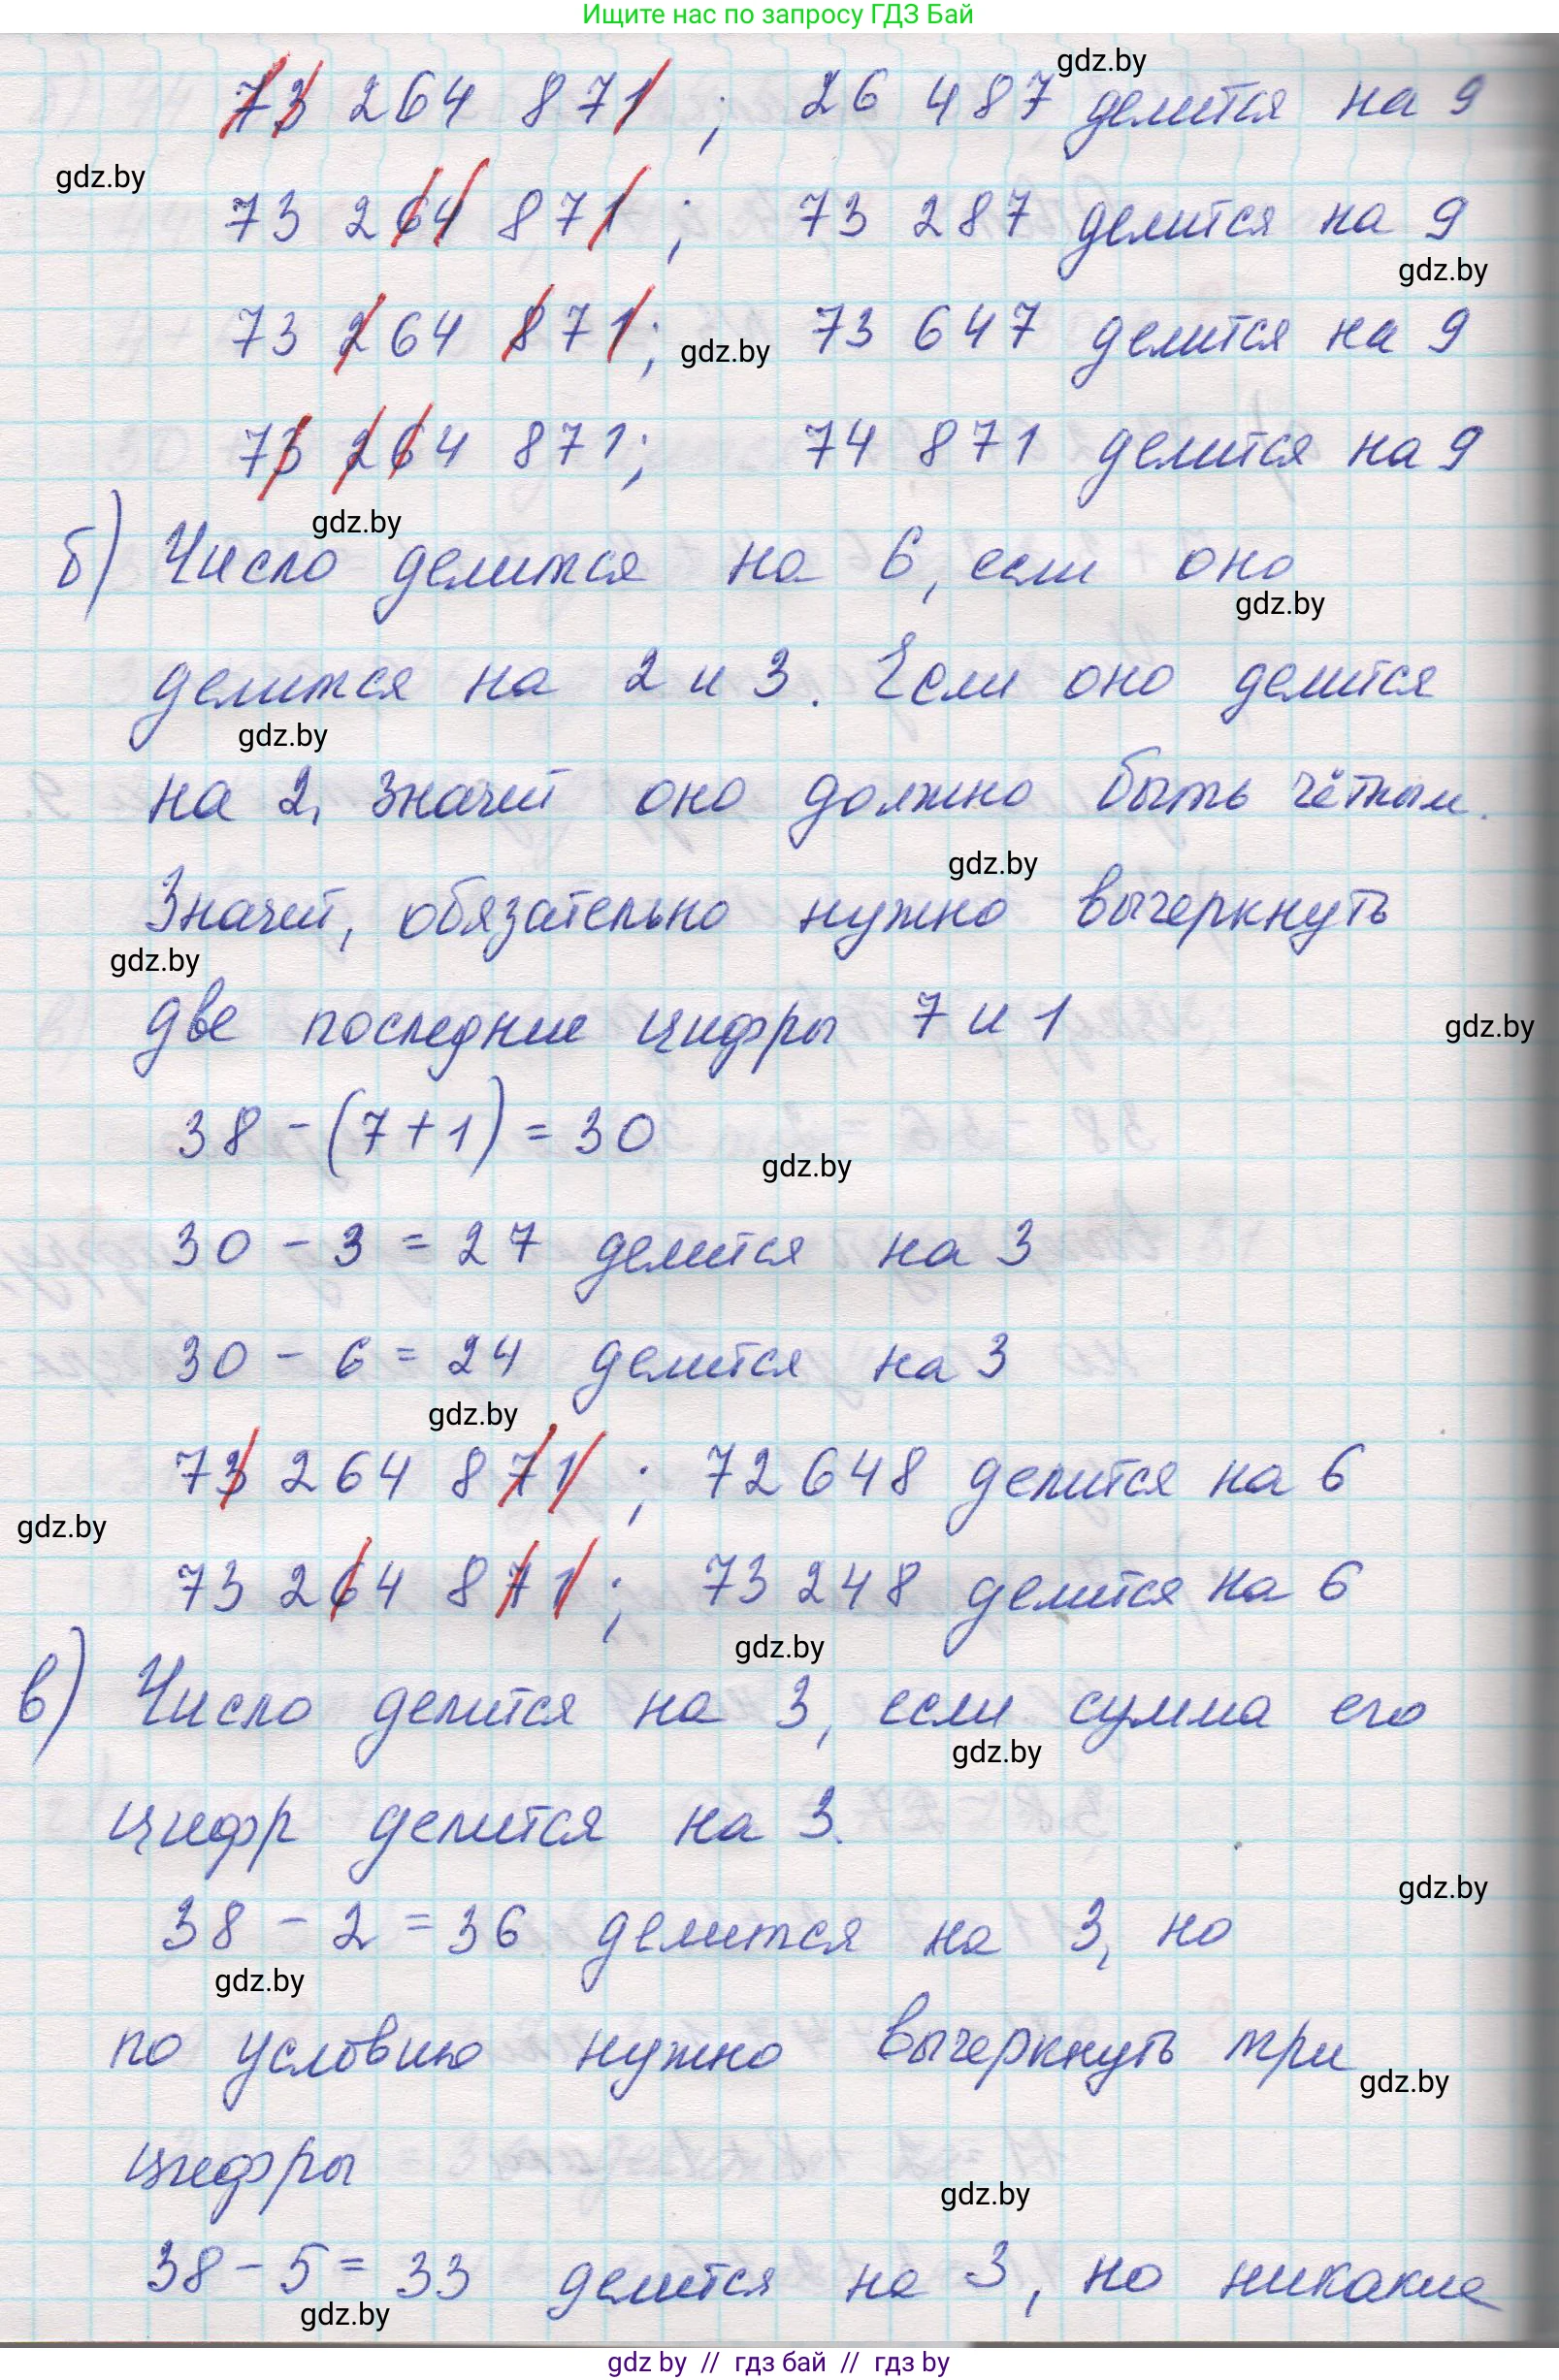 Ищите нас по запросу ГДЗ Бай
gdz.by
73 264 871 ; 26 487 делится на 9
gdz.by
73 264 871 ; 73 287 делится на 9
gdz.by
73 264 871; 73 647 делится на 9
gdz.by
73 264 871; 74 871 делится на 9
gdz.by
б) Число делится на 6, если оно
gdz.by
делится на 2 и 3. Если оно делится
gdz.by
на 2, значит оно должно быть чётным.
gdz.by
Значит, обязательно нужно вычеркнуть
gdz.by
две последние цифры 7 и 1
gdz.by
38 - (7+1) = 30
gdz.by
30 - 3 = 27 делится на 3
30 - 6 = 24 делится на 3
gdz.by
73 264 871 ; 72 648 делится на 6
gdz.by
73 264 871 ; 73 248 делится на 6
gdz.by
в) Число делится на 3, если сумма его
gdz.by
цифр делится на 3.
gdz.by
38 - 2 = 36 делится на 3, но
gdz.by
по условию нужно вычеркнуть три
gdz.by
цифры
gdz.by
38 - 5 = 33 делится на 3, но никакие
gdz.by
gdz by // гдз бай // gdz by